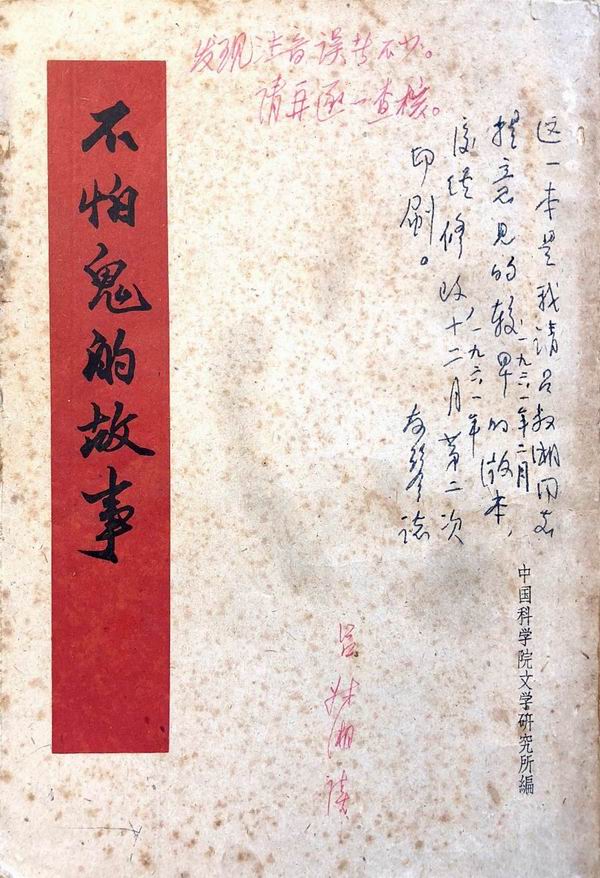 不怕鬼的故事
发现注音误不少。
请再逐一查核。
这一本是我请吕叔湘同志
提意见的较早的版本，
一九六一年二月
后经修改十二月第二次
一九六一年
印刷。
友琴誌
吕叔湘读
中国科学院文学研究所編